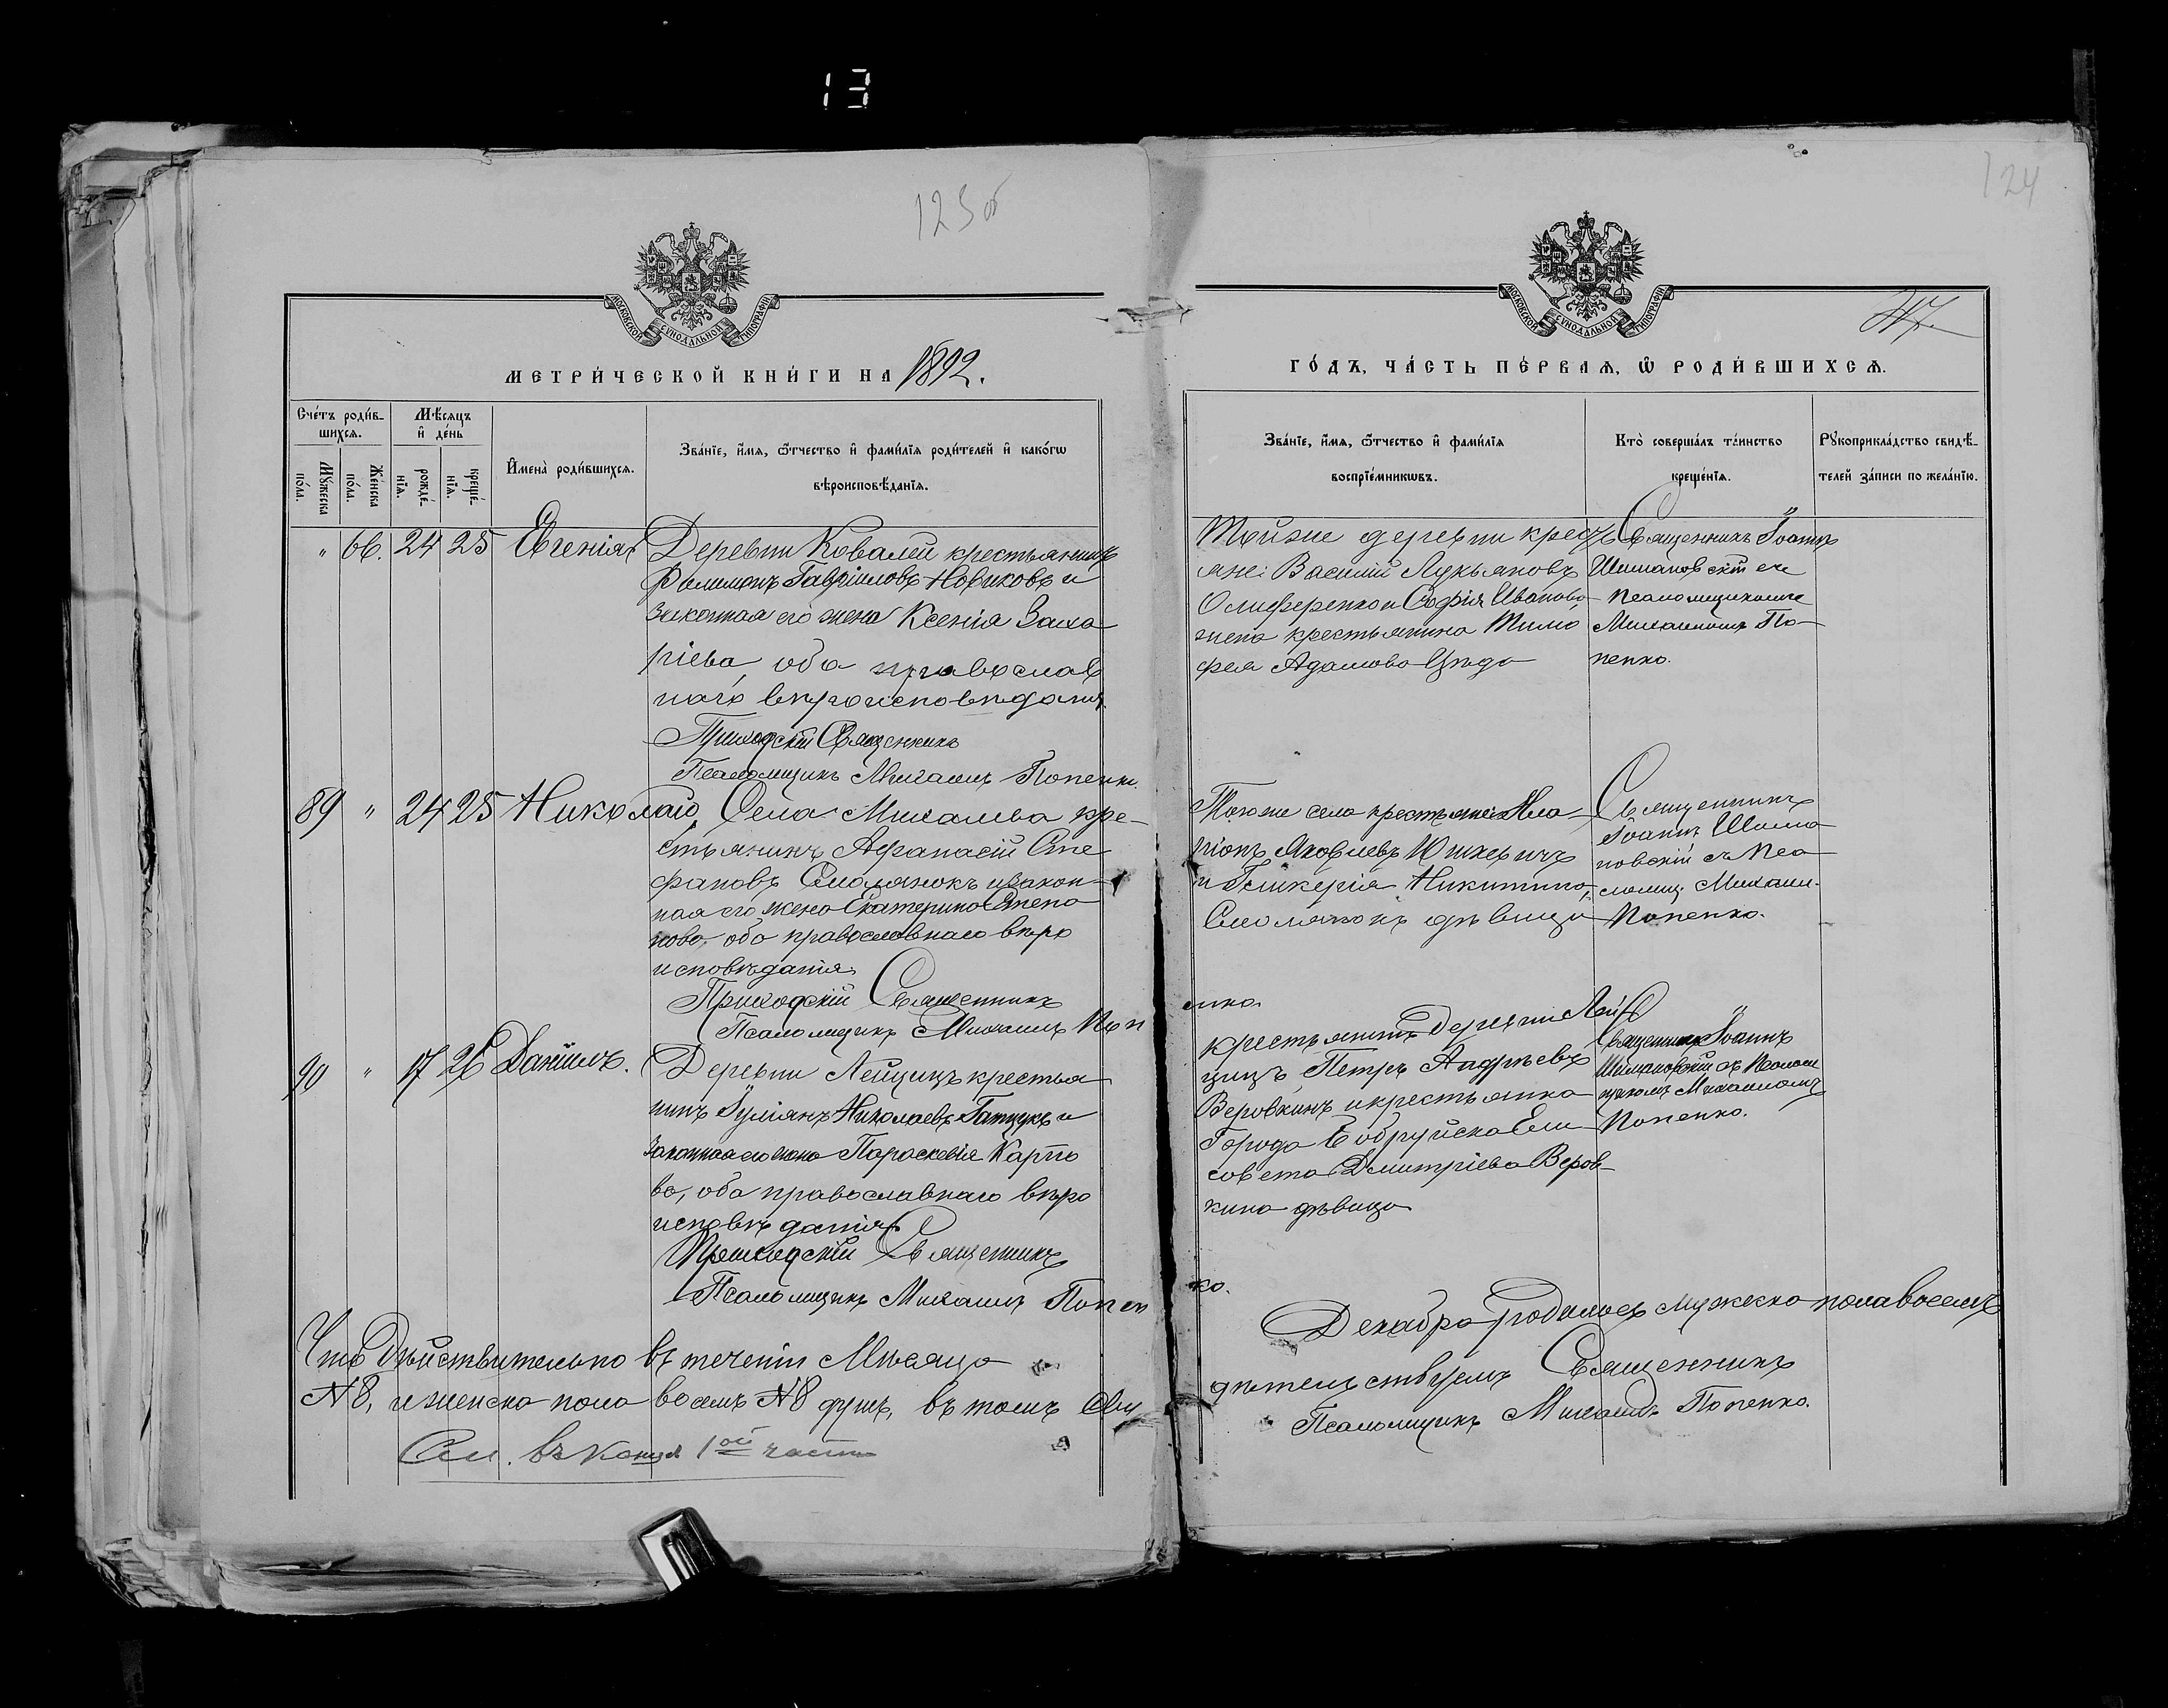 13
123 об
124
МОСКОВСКОЙ СУНОДАЛЬНОЙ ТИПОГРАФІИ
МОСКОВСКОЙ СУНОДАЛЬНОЙ ТИПОГРАФІИ
МЕТРИ́ЧЕСКОЙ КНИ́ГИ НА 1892.
ГО́ДЪ, ЧА́СТЬ ПЕ́РВАѦ, Ѡ РОДИ́ВШИХСѦ.
Сче́тъ роди́в-
шихсѧ.
Мꙋжеска по́ла.
Же́нска по́ла.
Мѣ́сяцъ
и҆ де́нь
рожде́-
нїѧ.
креще́-
нїѧ.
И҆мена̀ роди́вшихсѧ.
Зва́нїе, и҆́мѧ, ѻ҆́тчество и҆ фами́лїѧ роди́телей и҆ како́гѡ
вѣроисповѣ́данїѧ.
Зва́нїе, и҆́мѧ, ѻ҆́тчество и҆ фами́лїѧ
воспрїе́мникѡвъ.
Кто̀ соверша́лъ та́инство
креще́нїѧ.
Рꙋкоприкла́дство свидѣ́-
телей за́писи по жела́нїю.
" 66. 24 25 Евгенія
Деревни Ковалей крестьянинъ
Филимонъ Гавріиловъ Новиковъ и
законная его жена Ксенія Заха
ріева, оба православ
наго вѣроисповѣданія.
Приходскій Священникъ
Псаломщикъ Михаилъ Попенко.
Той же деревни кресть
яне: Василій Лукьяновъ
Олиференко и Софія Иванова,
жена крестьянина Тимо
фея Адамова
Священникъ Іоаннъ
Шимановскій съ
псаломщикомъ
Михаиломъ По-
пенко.
89 " 24 25 Николай
Села Михалева кре-
стьянинъ Афанасій Сте
фановъ Смолянокъ и закон-
ная его жена Екатерина Степа
нова, оба православнаго вѣро
исповѣданія
Приходскій Священникъ
Псаломщикъ Михаилъ Поп
енко.
Того же села крестьяне: Ила
ріонъ Яковлевъ Юшкевичъ
и Гликерія Никитина,
Смолянокъ дѣвица
Священникъ
Іоаннъ Шима
новскій съ Пса
ломщ. Михаил.
Попенко.
90 " 17 26 Даніилъ.
Деревни Лейцицъ крестья
нинъ Іуліянъ Николаевъ Гатцукъ и
законная его жена Параскевія Карпо
ва, оба православнаго вѣро
исповѣданія
Приходскій Священникъ
Псаломщикъ Михаилъ Попен
ко.
крестьянинъ Деревни Лей
цицъ Петръ Андреевъ
Веровкинъ и крестьянка
Города Бобруйска Ели
савета Дмитріева Веров-
кина дѣвица
Священникъ Іоаннъ
Шимановскій съ Псалом
щикомъ Михаиломъ
Попенко.
Что Дѣйствительно въ теченіи Мѣсяца
Декабря родилось мужеска пола восемь
N 8, и женска пола восемь N 8 душъ, въ томъ Сви
дѣтельствуемъ Священникъ
Псаломщикъ Михаилъ Попенко.
См. въ концѣ 1ой части